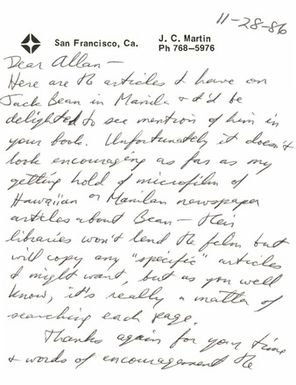 11-28-86
San Francisco, Ca.
J. C. Martin
Ph 768-5976
Dear Allan -
Here are the articles I have on
Jack Bean in Manila & I'd be
delighted to see mention of him in
your book. Unfortunately it doesn't
look encouraging as far as my
getting hold of microfilm of
Hawaiian or Manilan newspaper
articles about Bean - their
libraries won't lend the film but
will copy any "specific" articles
I might want, but as you well
know, it's really a matter of
searching each page.
Thanks again for your time
& words of encouragement the